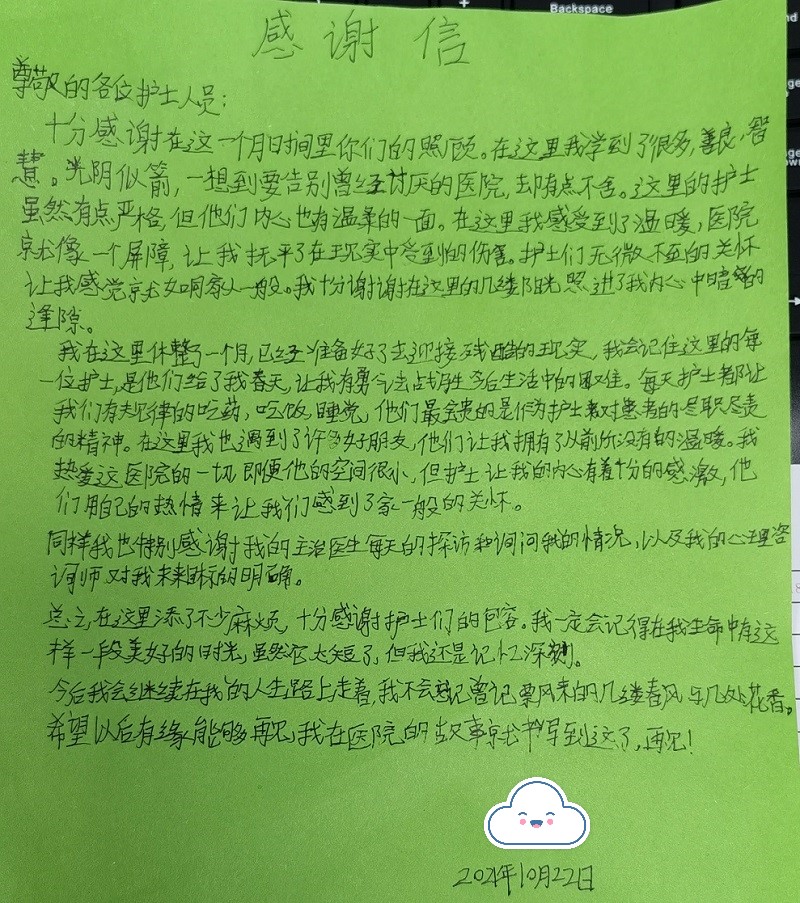 Backspace
感谢信
尊敬的各位护士人员:
十分感谢在这一个月时间里你们的照顾。在这里我学到了很多,善良,智
慧。光阴似箭,一想到要告别曾经讨厌的医院,却有点不舍。这里的护士
虽然有点严格,但他们内心也有温柔的一面。在这里我感受到了温暖,医院
就像一个屏障,让我抚平了在现实中受到的伤害。护士们无微不至的关怀
让我感觉就如同家人一般。我十分谢谢在这里的几缕阳光照进了我内心中暗的
缝隙。
我在这里休整了一个月,已经准备好了去迎接残酷的现实,我会记住这里的每
一位护士,是他们给了我春天,让我有勇气去战胜今后生活中的困难。每天护士都让
我们有规律的吃药,吃饭,睡觉,他们最宝贵的是作为护士对患者的尽职尽责
的精神。在这里我也遇到了许多好朋友,他们让我拥有了从前所没有的温暖。我
热爱这医院的一切即便他的空间很小,但护士让我的内心有着十分的感激,他
们用自己的热情来让我们感到了家一般的关怀。
同样我也特别感谢我的主治医生每天的探访和询问我的情况,以及我的心理咨
询师对我未来目标的明确。
总之,在这里添了不少麻烦,十分感谢护士们的包容。我一定会记得在我生命中有这
样一段美好的时光,虽然它太短了,但我还是记忆深刻。
今后我会继续在我的人生路上走着,我不会忘记曾记票风来的几缕春风与几处花香。
希望以后有缘能够再见,我在医院的故事就书写到这了,再见!
2021年10月22日